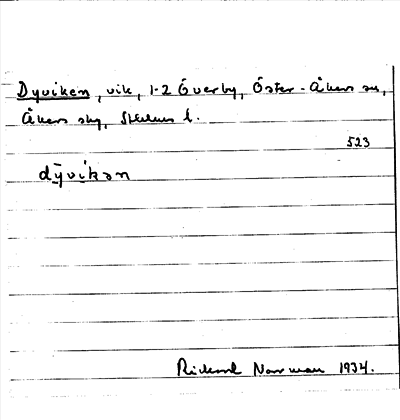 Dyviken, vik, 1-2 Överby, Öster-Åkers sn,
Åkers skg, Sthlms l.
523
dy̱viḵən
Rickard Norman 1934.